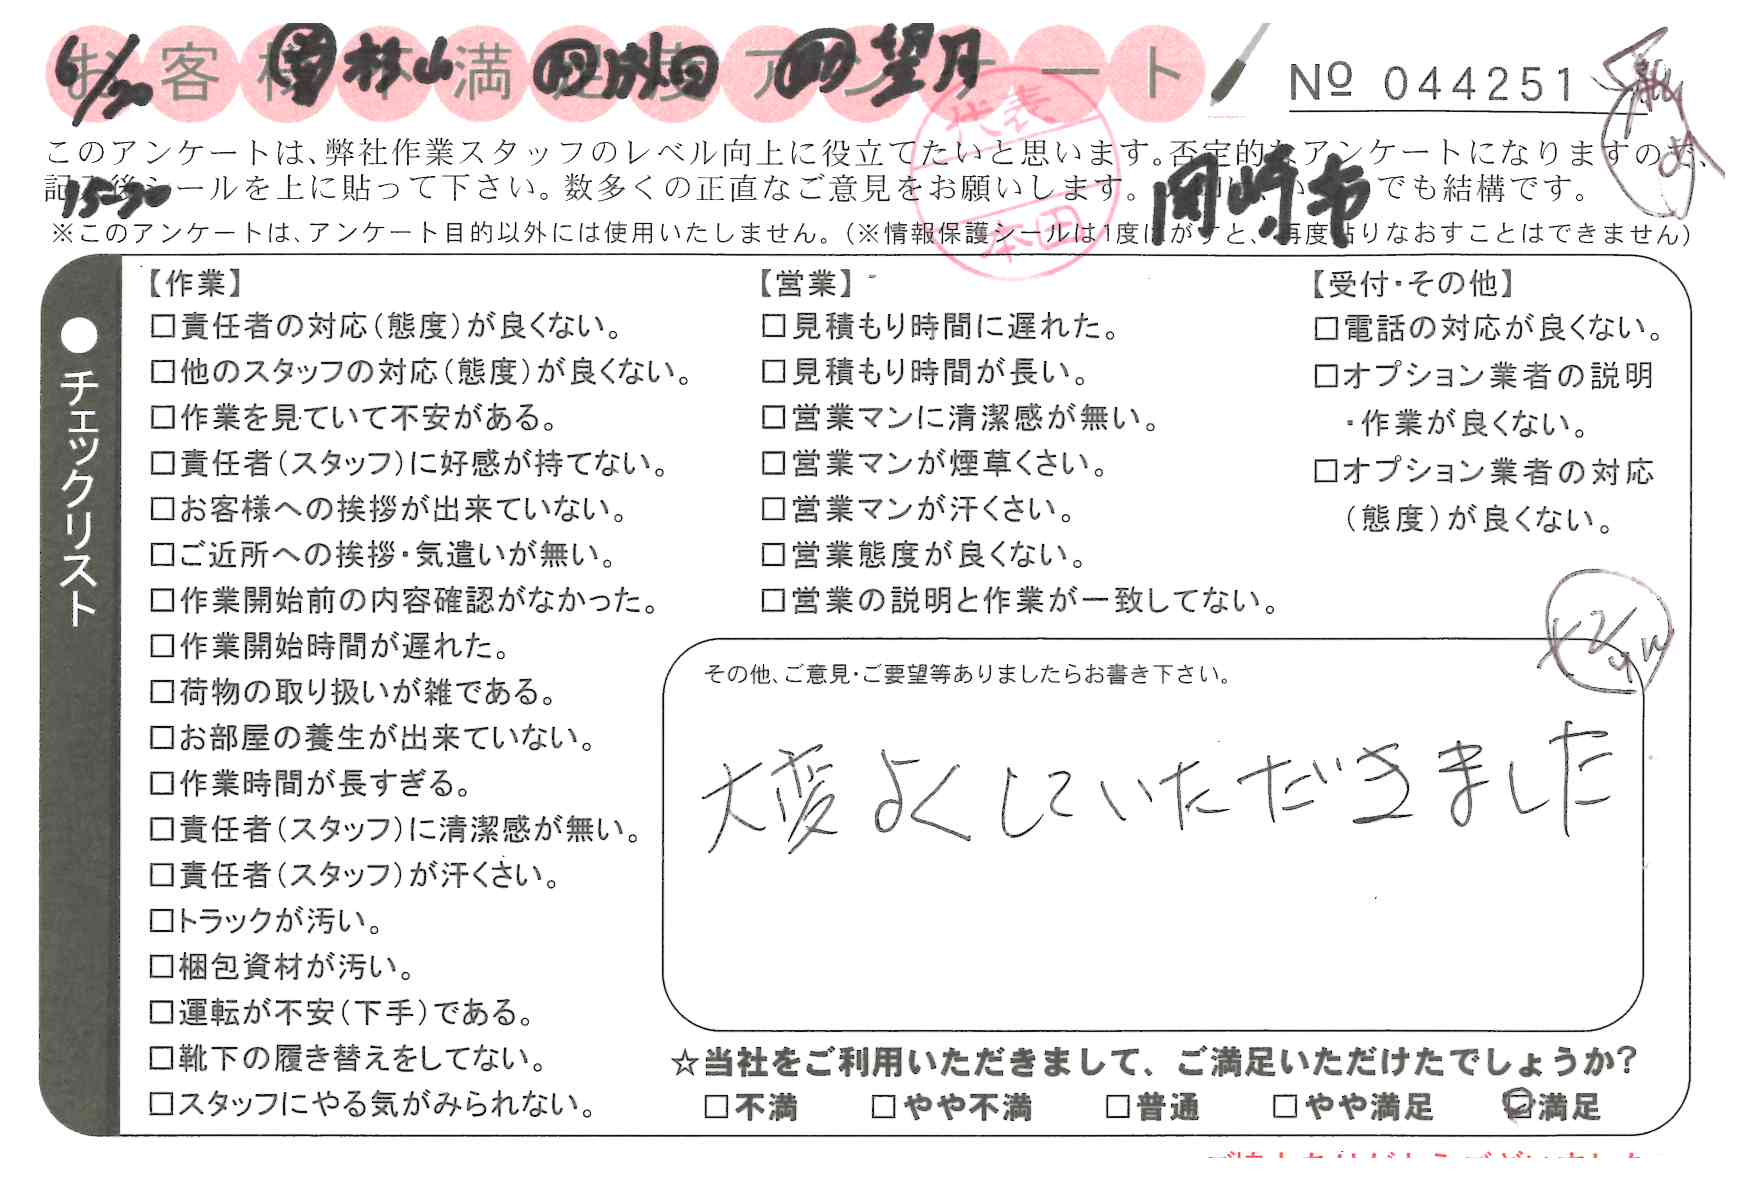 お客様不満足度アンケート
6/30 営 杉山 望月
Nº 044251
このアンケートは、弊社作業スタッフのレベル向上に役立てたいと思います。否定的なアンケートになりますので、
記入後シールを上に貼って下さい。数多くの正直なご意見をお願いします。 でも結構です。
15-30
岡崎市
代表
本田
※このアンケートは、アンケート目的以外には使用いたしません。(※情報保護シールは1度はがすと、再度貼りなおすことはできません)
●チェックリスト
【作業】
□責任者の対応(態度)が良くない。
□他のスタッフの対応(態度)が良くない。
□作業を見ていて不安がある。
□責任者(スタッフ)に好感が持てない。
□お客様への挨拶が出来ていない。
□ご近所への挨拶・気遣いが無い。
□作業開始前の内容確認がなかった。
□作業開始時間が遅れた。
□荷物の取り扱いが雑である。
□お部屋の養生が出来ていない。
□作業時間が長すぎる。
□責任者(スタッフ)に清潔感が無い。
□責任者(スタッフ)が汗くさい。
□トラックが汚い。
□梱包資材が汚い。
□運転が不安(下手)である。
□靴下の履き替えをしてない。
□スタッフにやる気がみられない。
【営業】
□見積もり時間に遅れた。
□見積もり時間が長い。
□営業マンに清潔感が無い。
□営業マンが煙草くさい。
□営業マンが汗くさい。
□営業態度が良くない。
□営業の説明と作業が一致してない。
【受付・その他】
□電話の対応が良くない。
□オプション業者の説明
・作業が良くない。
□オプション業者の対応
(態度)が良くない。
その他、ご意見・ご要望等ありましたらお書き下さい。
大変よくしていただきました
☆当社をご利用いただきまして、ご満足いただけたでしょうか?
□不満 □やや不満 □普通 □やや満足 ☑満足